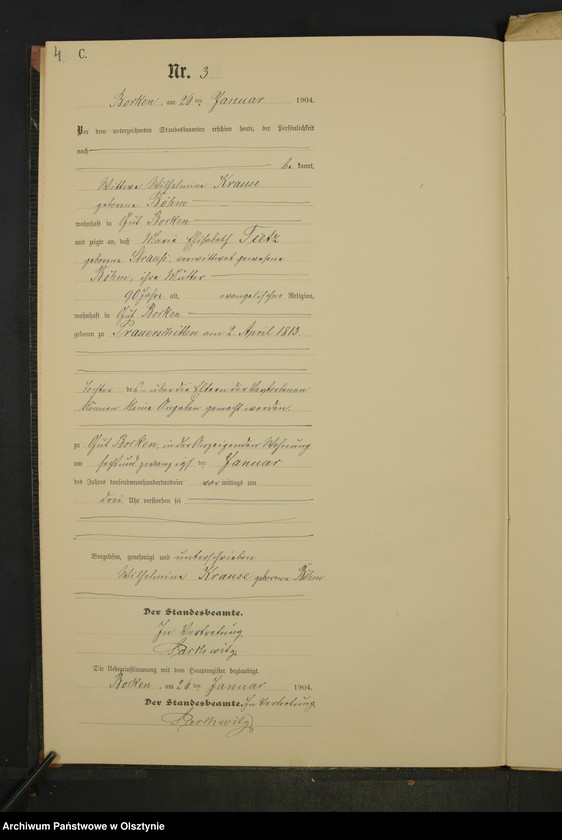 4 C.
Nr. 3
Borken, am 26 ten Januar 1904.
Vor dem unterzeichneten Standesbeamten erschien heute, der Persönlichkeit
nach
be kannt,
Wittwe Wilhelmine Krause
geborene Böhm
wohnhaft in Gut Borken
und zeigte an, daß Marie Elisabeth Tietz
geborene Strauß, verwittwet gewesene
Böhm, ihre Mutter
90 Jahre alt, evangelischer Religion,
wohnhaft in Gut Borken
geboren zu am 2. April 1813.
Tochter des über die Eltern der Verstorbenen
können keine Angaben gemacht werden.
zu Gut Borken, in der Anzeigenden Wohnung
am sechsundzwanzigsten Januar
des Jahres tausendneunhundertundvier vor mittags um
drei Uhr verstorben sei
Vorgelesen, genehmigt und unterschrieben
Wilhelmine Krause geborene Böhm
Der Standesbeamte.
In Vertretung
Die Uebereinstimmung mit dem Hauptregister beglaubigt.
Borken, am 26 ten Januar 1904.
Der Standesbeamte. In Vertretung
Archiwum Państwowe w Olsztynie